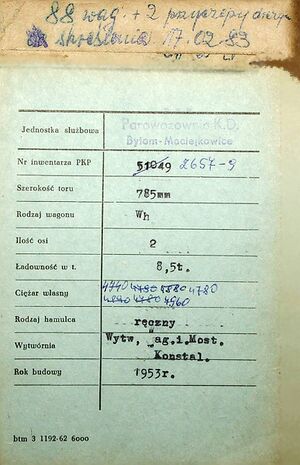 88 wag + 2 przyczepy
skreślenia 17.02.83
Jednostka służbowa Parowozownia K.D.
Bytom-Maciejkowice
Nr inwentarza PKP 51049 2657-9
Szerokość toru 785mm
Rodzaj wagonu Wh
Ilość osi 2
Ładowność w t. 8,5t.
4940 4780 4880 4780
Ciężar własny
4840 4780 4960
Rodzaj hamulca ręczny
Wytw, Wag.i.Most.
Wytwórnia
Konstal.
Rok budowy 1953r.
btm 3 1192-62 6000